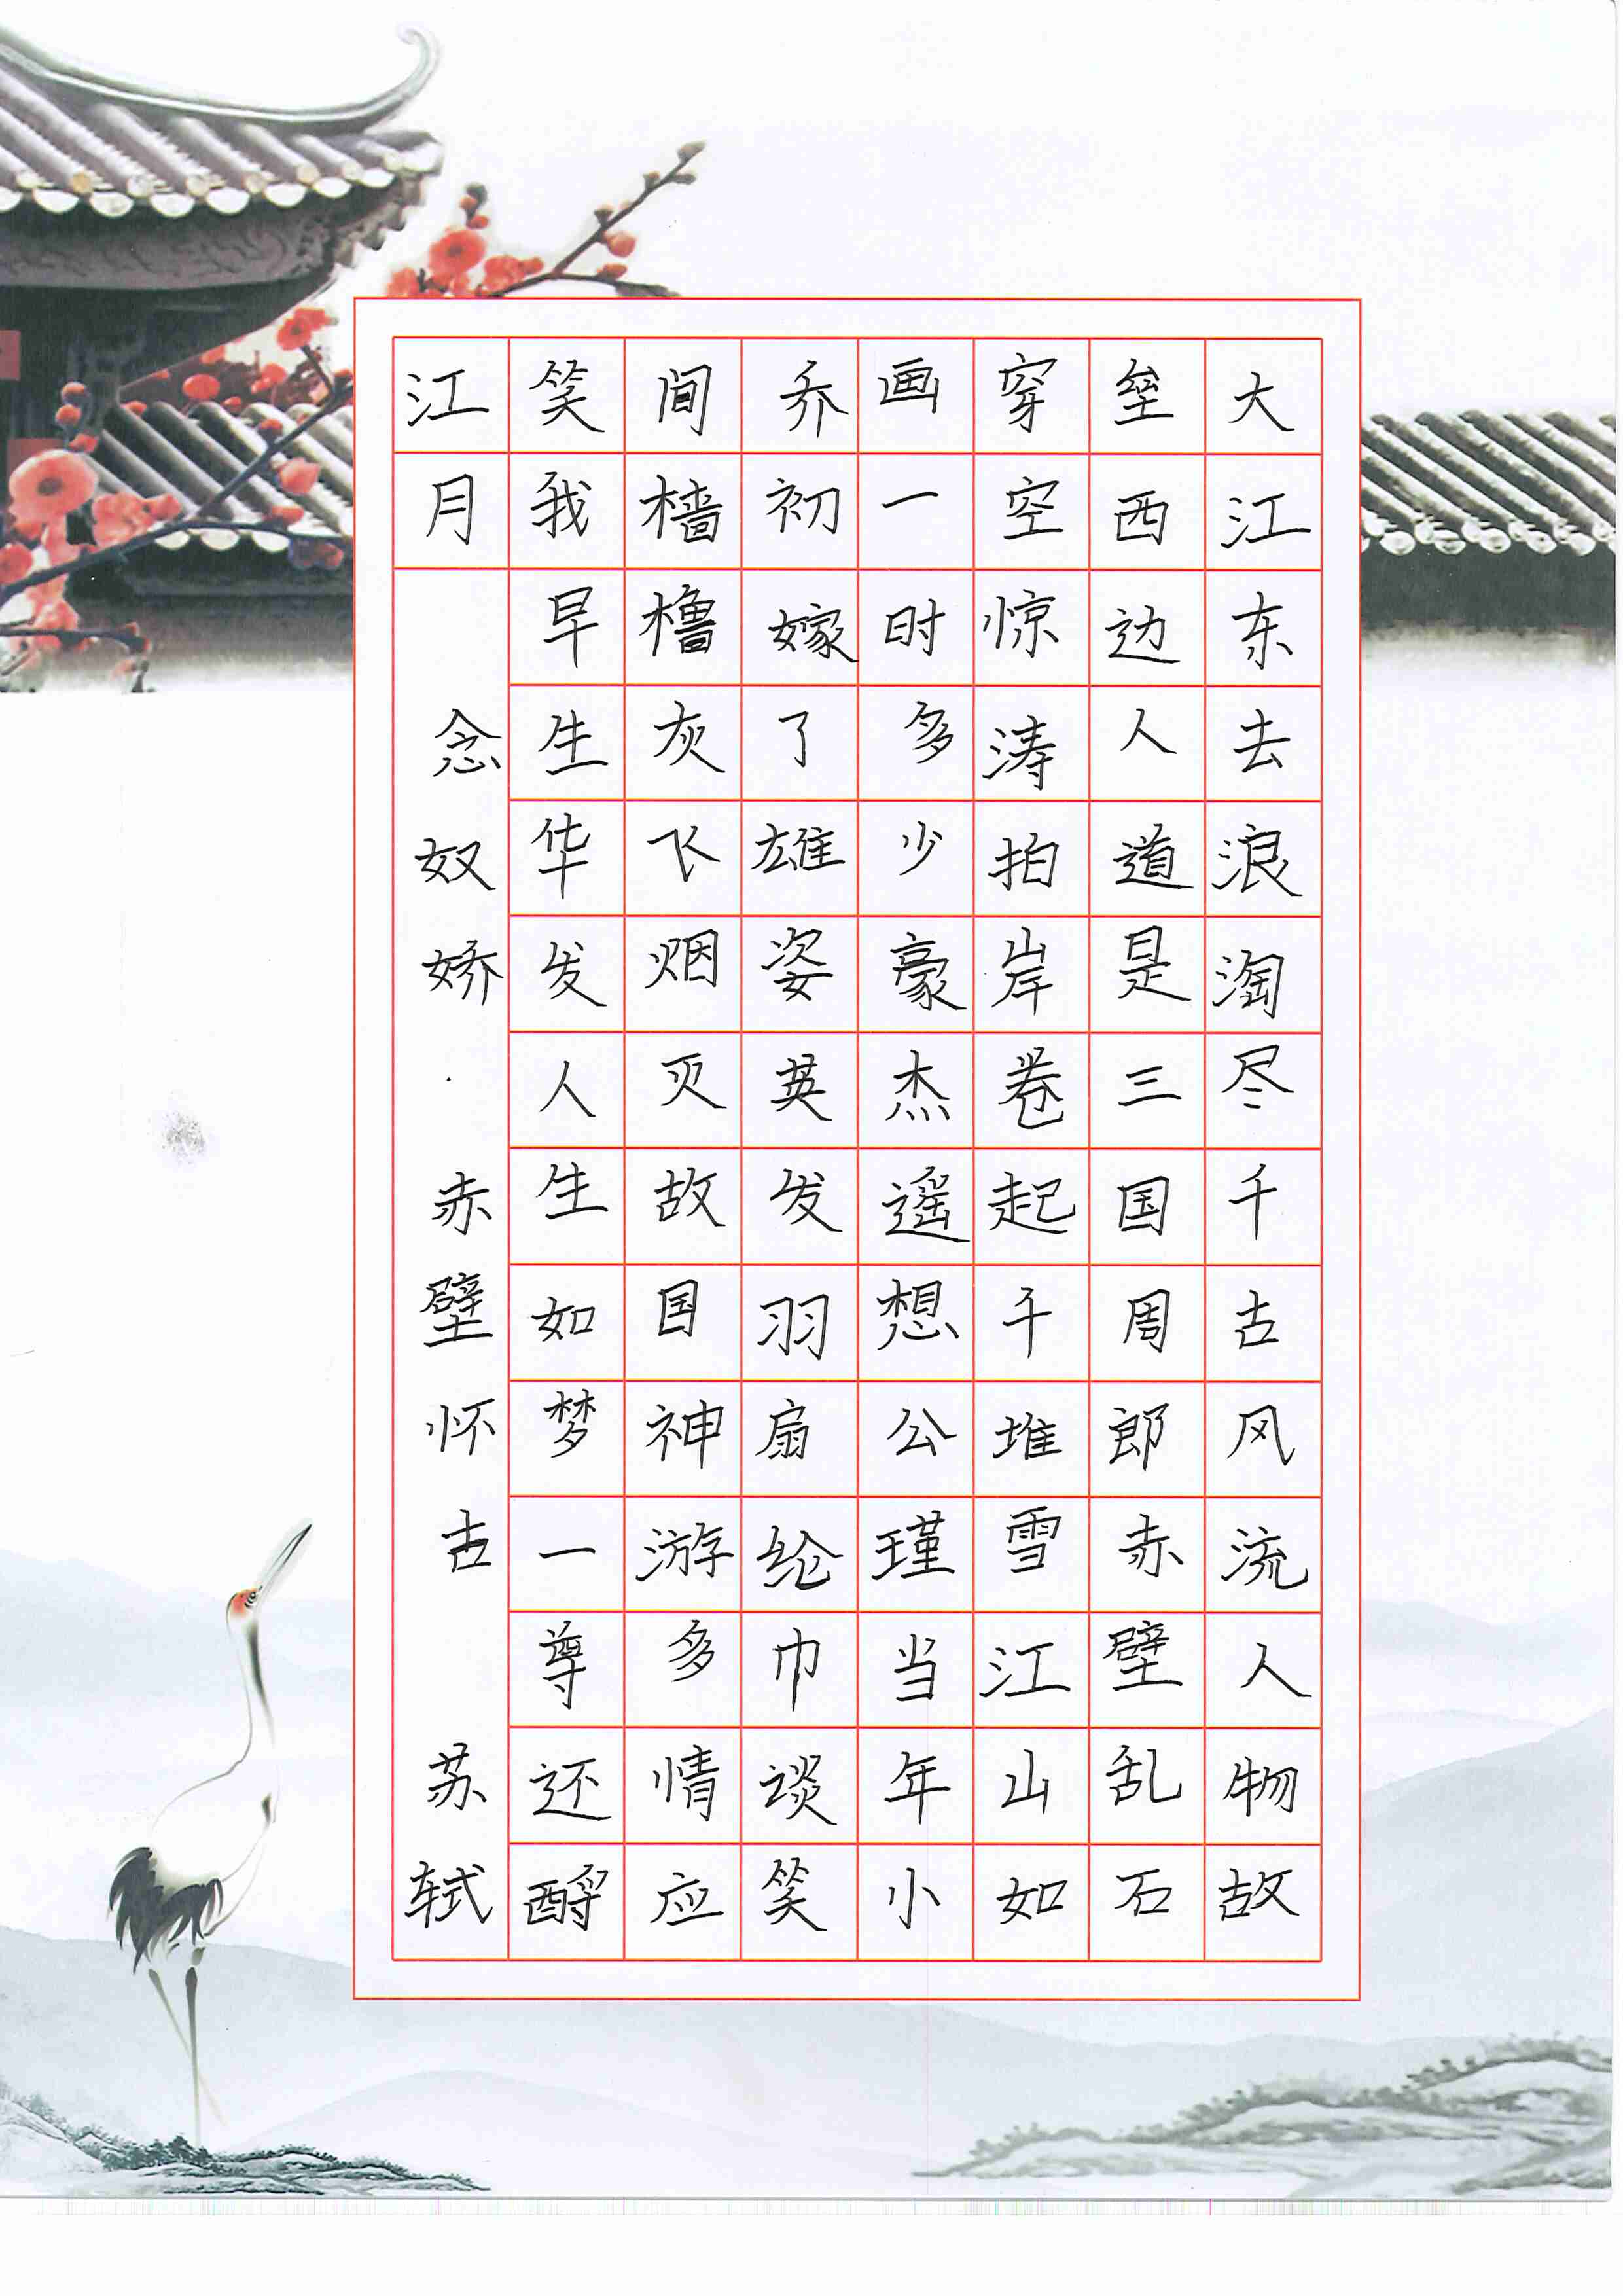 大江东去浪淘尽千古风流人物故
垒西边人道是三国周郎赤壁乱石
穿空惊涛拍岸卷起千堆雪江山如
画一时多少豪杰遥想公瑾当年小
乔初嫁了雄姿英发羽扇纶巾谈笑
间樯橹灰飞烟灭故国神游多情应
笑我早生华发人生如梦一尊还酹
江月 念奴娇·赤壁怀古 苏轼